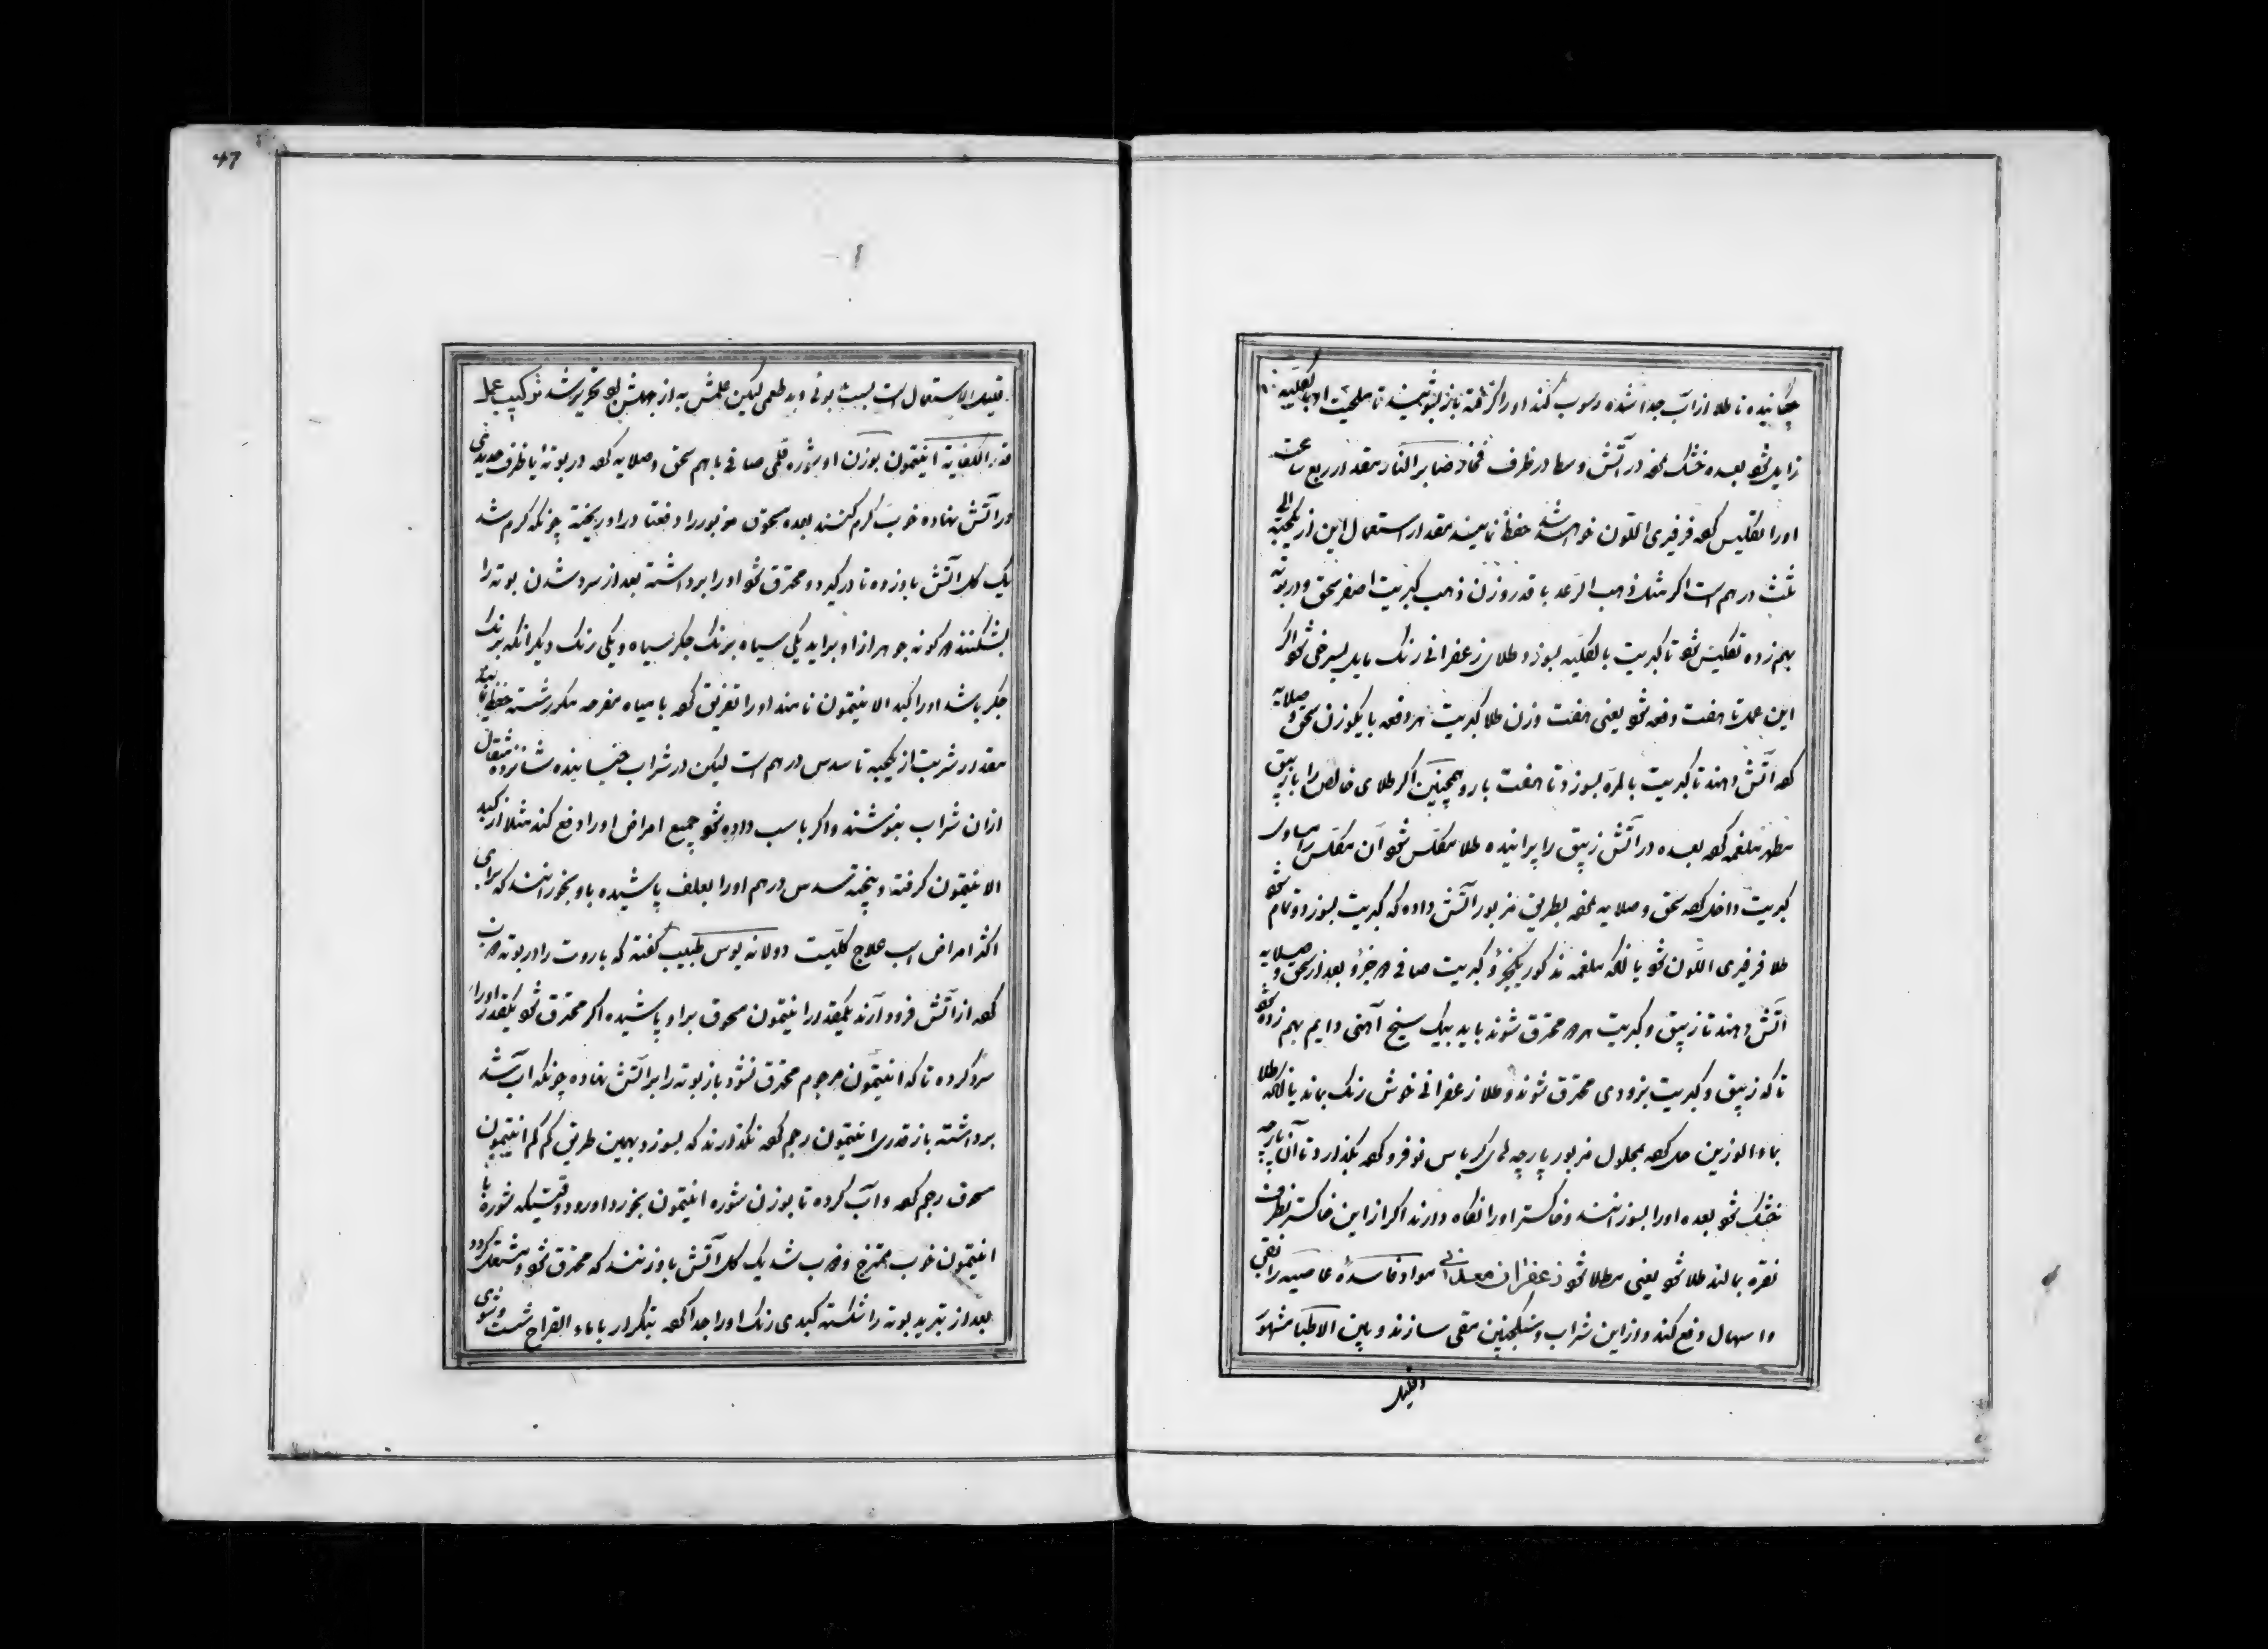 چکانیده تا طلا از آب جدا شده رسوب کند اورا گرفته باز بشویند تا ملحیت او بالکلیه
زایل شود بعده خشک نموده در آتش وسط در ظرف فخار صابر النار مقدار ربع ساعت
اورا تکلیس کرده فرفیری اللون خواهد شد حفظ نمایند مقدار استعمال این از یکحبه الی
ثلث درهم است اگر مثل ذهب الرعد با قدر وزن ذهب کبریت اصفر سحق و در بوته
بهم زده تکلیس شود تا کبریت بالکلیه بسوزد و طلای زعفرانی رنگ مایل بسرخی شود اگر
این عمل تا هفت دفعه شود یعنی هفت وزن طلا کبریت هر دفعه با یکوزن سحق و صلایه
کرده آتش دهند تا کبریت بالمره بسوزد تا هفت بار و همچنین اگر طلای خالص را با زیبق
مطهر ملغمه کرده بعده در آتش زیبق را پرانیده طلا مکلس شود آن مکلس را مساوی
کبریت داخل کرده سحق و صلایه نموده بطریق مزبور آتش داده که کبریت بسوزد و تمام شود
طلا فرفیری اللون شود یا آنکه ملغمه مذکور یکجزؤ و کبریت صافی جزؤ بعد از سحق و صلایه
آتش دهند تا زیبق و کبریت هر دو محترق شوند باید بیک سیخ آهنی دایم بهم زده شود
تا که زیبق و کبریت بزودی محترق شوند و طلا زعفرانی خوش رنگ بماند یا آنکه طلا
بماء الوزین حل کرده بمحلول مزبور پارچه های کرباس نو فرو کرده بگذارد تا آن پارچه
خشک شود بعده اورا بسوزانند و خاکستر اورا نگاه دارند اگر از این خاکستر بظرف
نقره بمالند طلا شود یعنی مطلا شود زعفران معدنی مواد فاسدهٔ عاصیه را بقی
و اسهال دفع کند و از این شراب و سکنجبین مقی سازند و بین الاطبا مشهور
و قلیل
47
قلیل الاستعمال است بسبب بوئی و بد طعمی لیکن عملش به از جهلش بود تحریر شد ترکیب عمل
قدر الکفایة انتیمون بوزن او شوره قلمی صافی باهم سحق و صلایه کرده در بوتهٔ یا ظرف حدیدی
در آتش نهاده خوب گرم کنند بعده مسحوق مزبور را دفعتا در او ریخته چونکه گرم شد
یک گل آتش باو زده تا درگیرد و محترق شود اورا برداشته بعد از سرد شدن بوته را
بشکنند دو گونه جوهر از او براید یکی سیاه برنگ جگر سیاه و یکی رنگ دیگر آنکه برنگ
جگر باشد اورا کبد الانتیمون نامند اورا تفریق کرده با میاه مفرحه مکرر شسته حفظ نمایند
مقدار شربت از یکحبه تا سدس درهم است لیکن در شراب خیسانیده شانزده مثقال
ازان شراب بنوشند و اگر باسب داده شود جمیع امراض اورا دفع کند مثلا از کبد
الانتیمون گرفته و پنجه سدس درهم اورا بعلف پاشیده باو بخورانند که برای
اکثر امراض اسب علاج کلیت دولانه یوس طبیب گفته که باروت را در بوته ذوب
کرده از آتش فرود آرند یکقدر انتیمون مسحوق براو پاشیده اگر محترق شود یکقدر اورا
سرد کرده تا که انتیمون مرجوم محترق نشود باز بوته را بر آتش نهاده چونکه آب شد
برداشته باز قدری انتیمون رجم کرده نگذارند که بسوزد بهمین طریق کم کم انتیمون
مسحوق رجم کرده و آب کرده تا بوزن شوره انتیمون بخورد او رود وقتیکه شوره با
انتیمون خوب ممتزج و ذوب شد یک گل آتش باو زنند که محترق شود و مشتعل گردد
بعد از تبرید بوته را شکسته کبدی رنگ اورا جدا کرده بتکرار با ماء القراح شست و شوی